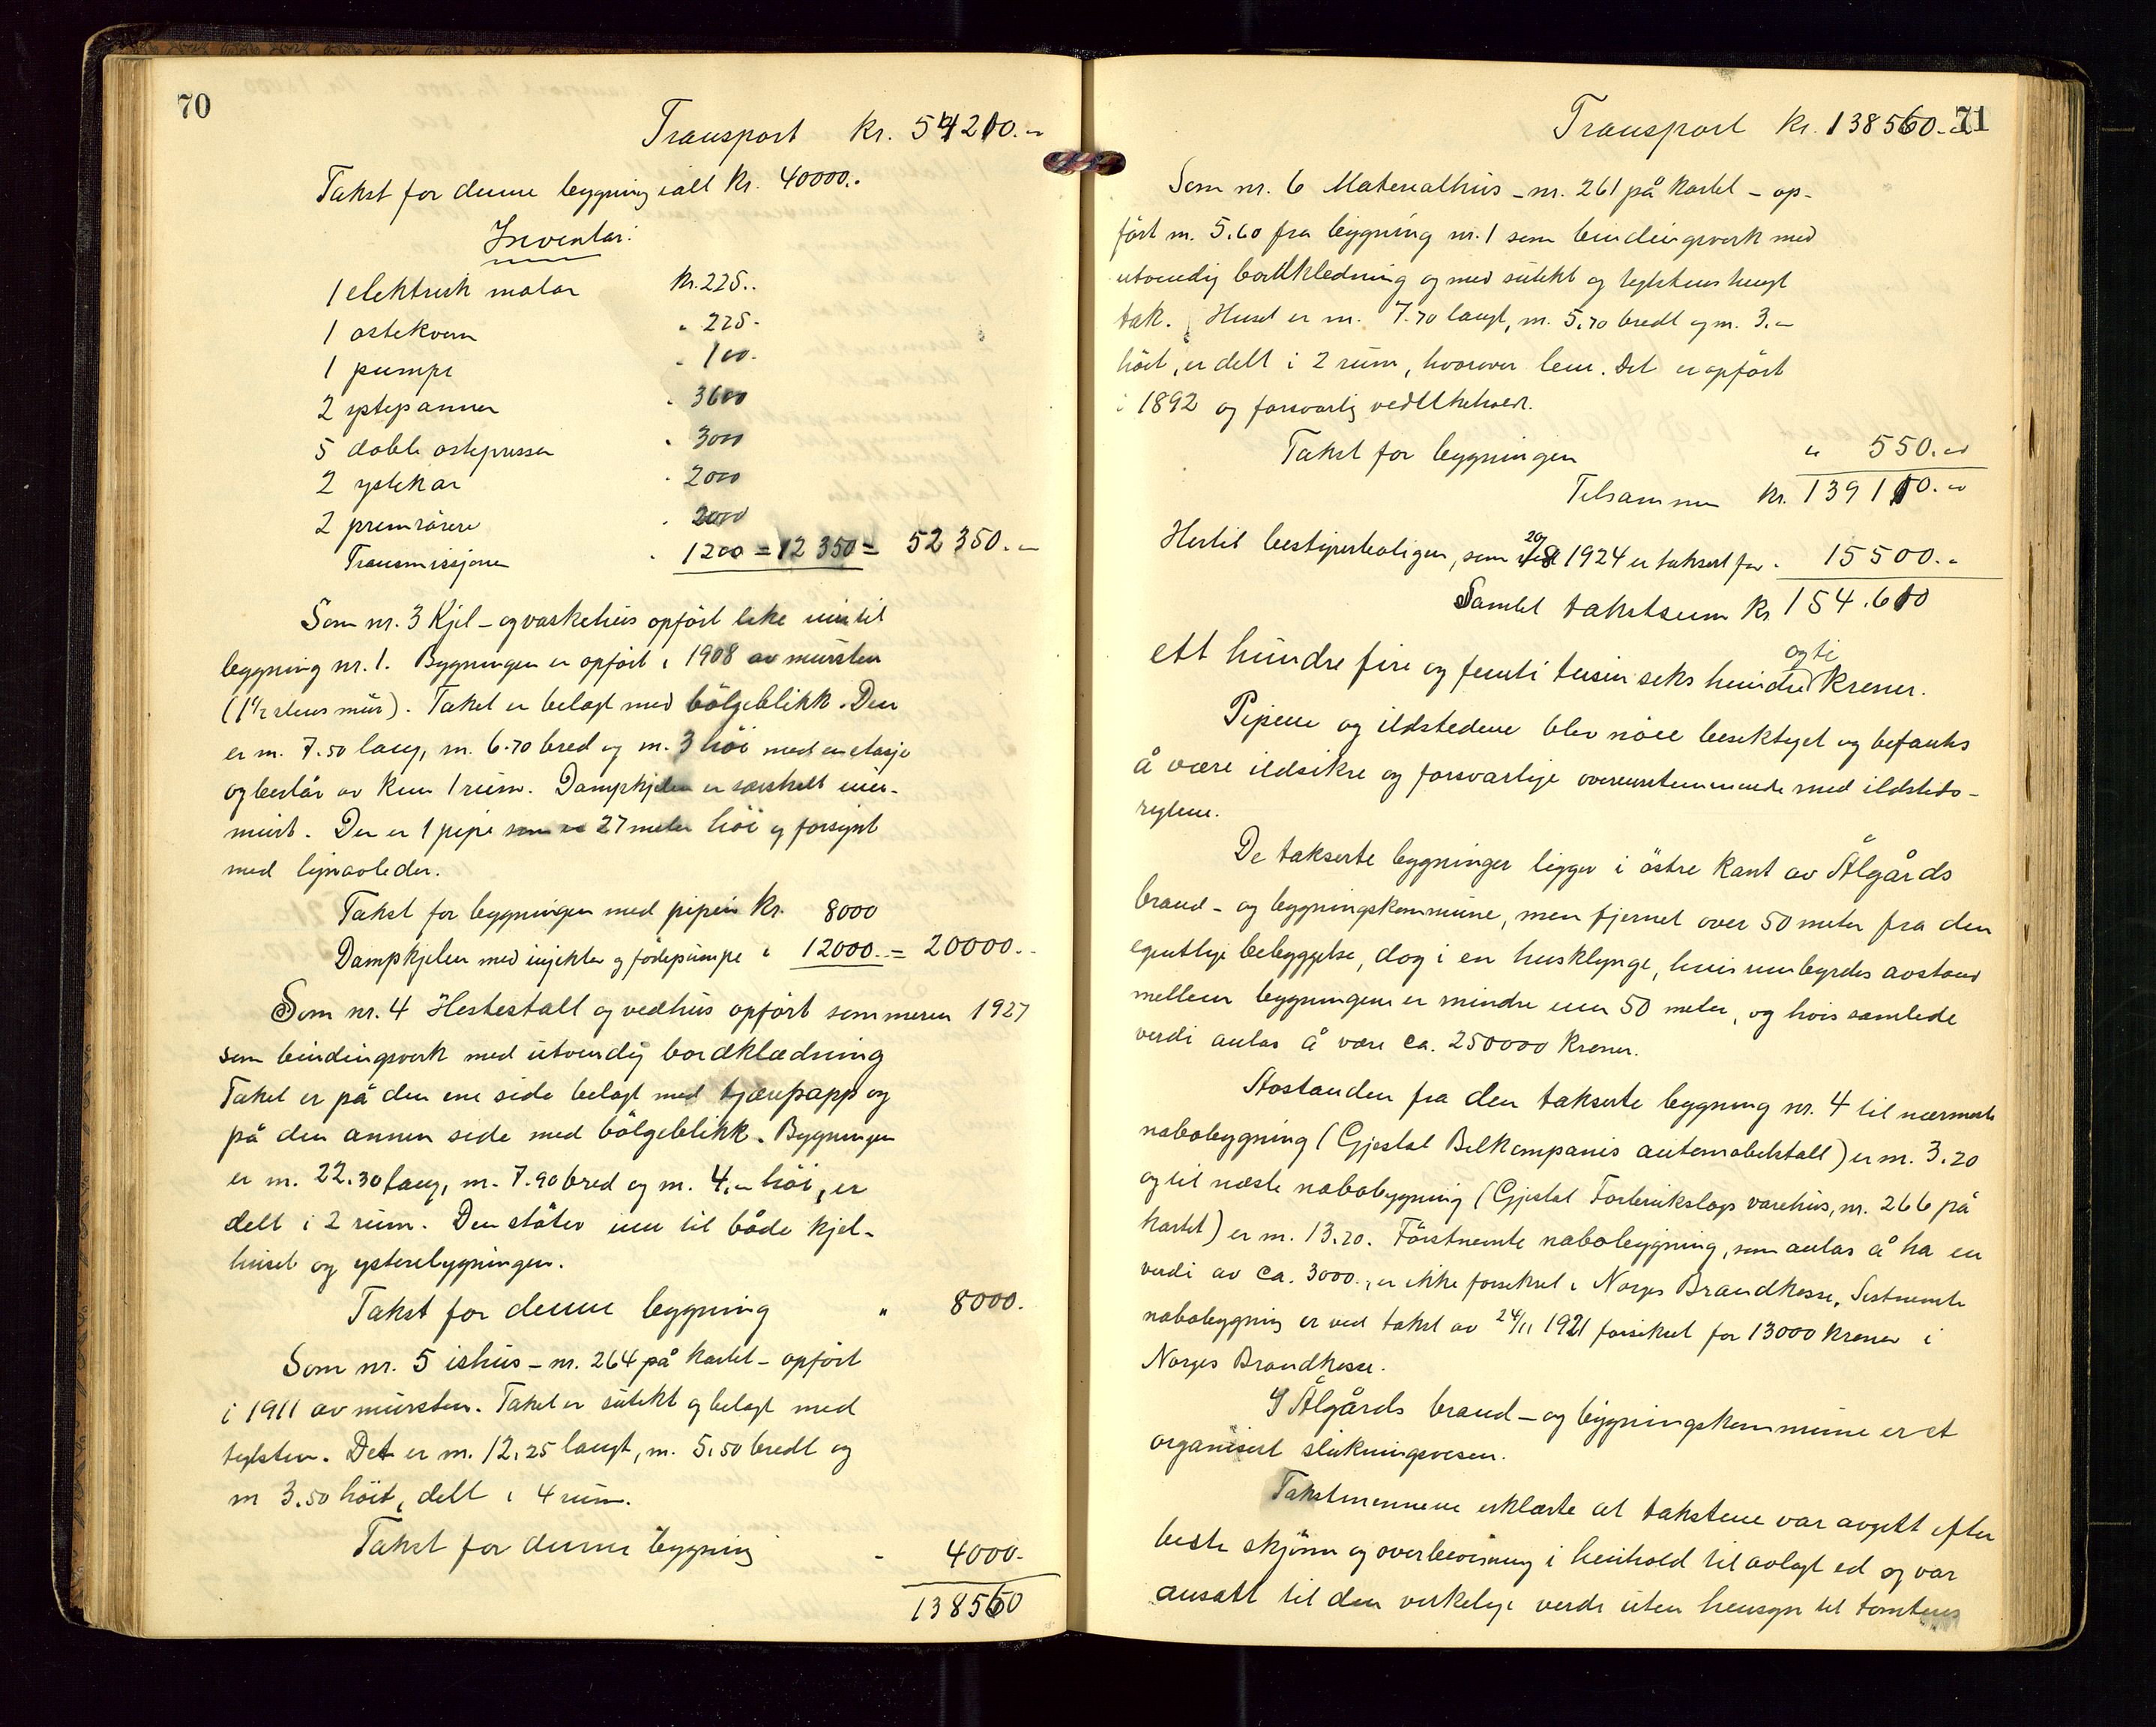 70
Transport Kr. 54210.-
Takst for denne bygning ialt Kr. 40000.-
Inventar:
1 elektrisk motor Kr. 225.-
1 ostekvern " 225.-
1 pumpe " 100.-
2 ystepanner " 3600
5 doble ostepresser " 3000
2 ystekar " 2000
2 primrörere " 2000
Transmissjoner " 1200 = 12350 = 52350.-
Som nr. 3 Kjel- og vaskehus opfört like inntil
bygning nr. 1. Bygningen er opfört i 1908 av mursten
(1 1/2 stens mur). Taket er belagt med bölgeblikk. Den
er m. 7.50 lang, m. 6.70 bred og m. 3 höi med en etasje
og består av kun 1 rum. Dampkjelen er særskilt inn-
murt. Der er 1 pipe som er 27 meter höi og forsynt
med lynavleder.
Takst for bygningen med pipen Kr. 8000
Dampkjelen med injektor og födepumpe " 12000.- = 20000.-
Som nr. 4 Hestestall og vedhus opfört sommeren 1927
som bindingsverk med utvendig bordklædning
Taket er på den ene side belagt med tjærepapp og
på den annen side med bölgeblikk. Bygningen
er m. 22.30 lang, m. 7.90 bred og m. 4.- höi, er
delt i 2 rum. Den stöter inn til både kjel-
huset og ysteribygningen.
Takst for denne bygning " 8000.
Som nr. 5 ishus - nr. 264 på kartet - opfört
i 1911 av mursten. Taket er sutekt og belagt med
teglsten. Det er m. 12.25 langt, m. 5.50 bredt og
m 3.50 höit, delt i 4 rum.
Takst for denne bygning - 4000.-
138560
71
Transport Kr. 138560.-
Som nr. 6 Materialhus - nr. 261 på kartet - op-
fört m. 5.60 fra bygning nr. 1 som bindingsverk med
utvendig bordkledning og med sutekt og teglstenshengt
tak. Huset er m. 7.70 langt, m. 5.70 bredt og m. 3.-
höit, er delt i 2 rum, hvorover lem. Det er opfört
i 1892 og forsvarlig vedlikeholdt.
Takst for bygningen " 550.-
Tilsammen Kr. 139110.-
Hertil bestyrerboligen, som 20/8 1924 er taksert for - 15500.-
Samlet takstsum Kr 154.610
ett hundre fire og femti tusin seks hundre og ti kroner.
Pipene og ildstedene blev nöie besiktyget og befantes
å være ildsikre og forsvarlige overensstemmende med ildsteds-
reglene.
De takserte bygninger ligger i östre kant av Ålgårds
brand- og bygningskommune, men fjernet over 50 meter fra den
egentlige bebyggelse, dog i en husklynge, hvis innbyrdes avstand
mellem bygningene er mindre enn 50 meter, og hvis samlede
verdi antas å være ca. 250000 kroner.
Avstanden fra den takserte bygning nr. 4 til nærmeste
nabobygning (Gjestal Bilkompanis automobilstall) er m. 3.20
og til næste nabobygning (Gjestal Forbrukslags varehus, nr. 266 på
kartet) er m. 13.20. Förstnemte nabobygning, som antas å ha en
verdi av ca. 3000.-, er ikke forsikret i Norges Brandkasse. Sistnemte
nabobygning er ved takst av 24/11 1921 forsikret for 13000 kroner i
Norges Brandkasse.
I Ålgårds brand- og bygningskommune er et
organisert slukningsvesen.
Takstmennene erklærte at takstene var avgitt efter
beste skjönn og overbevisning i henhold til avlagt ed og var
ansatt til den virkelige verdi uten hensyn til tomtens